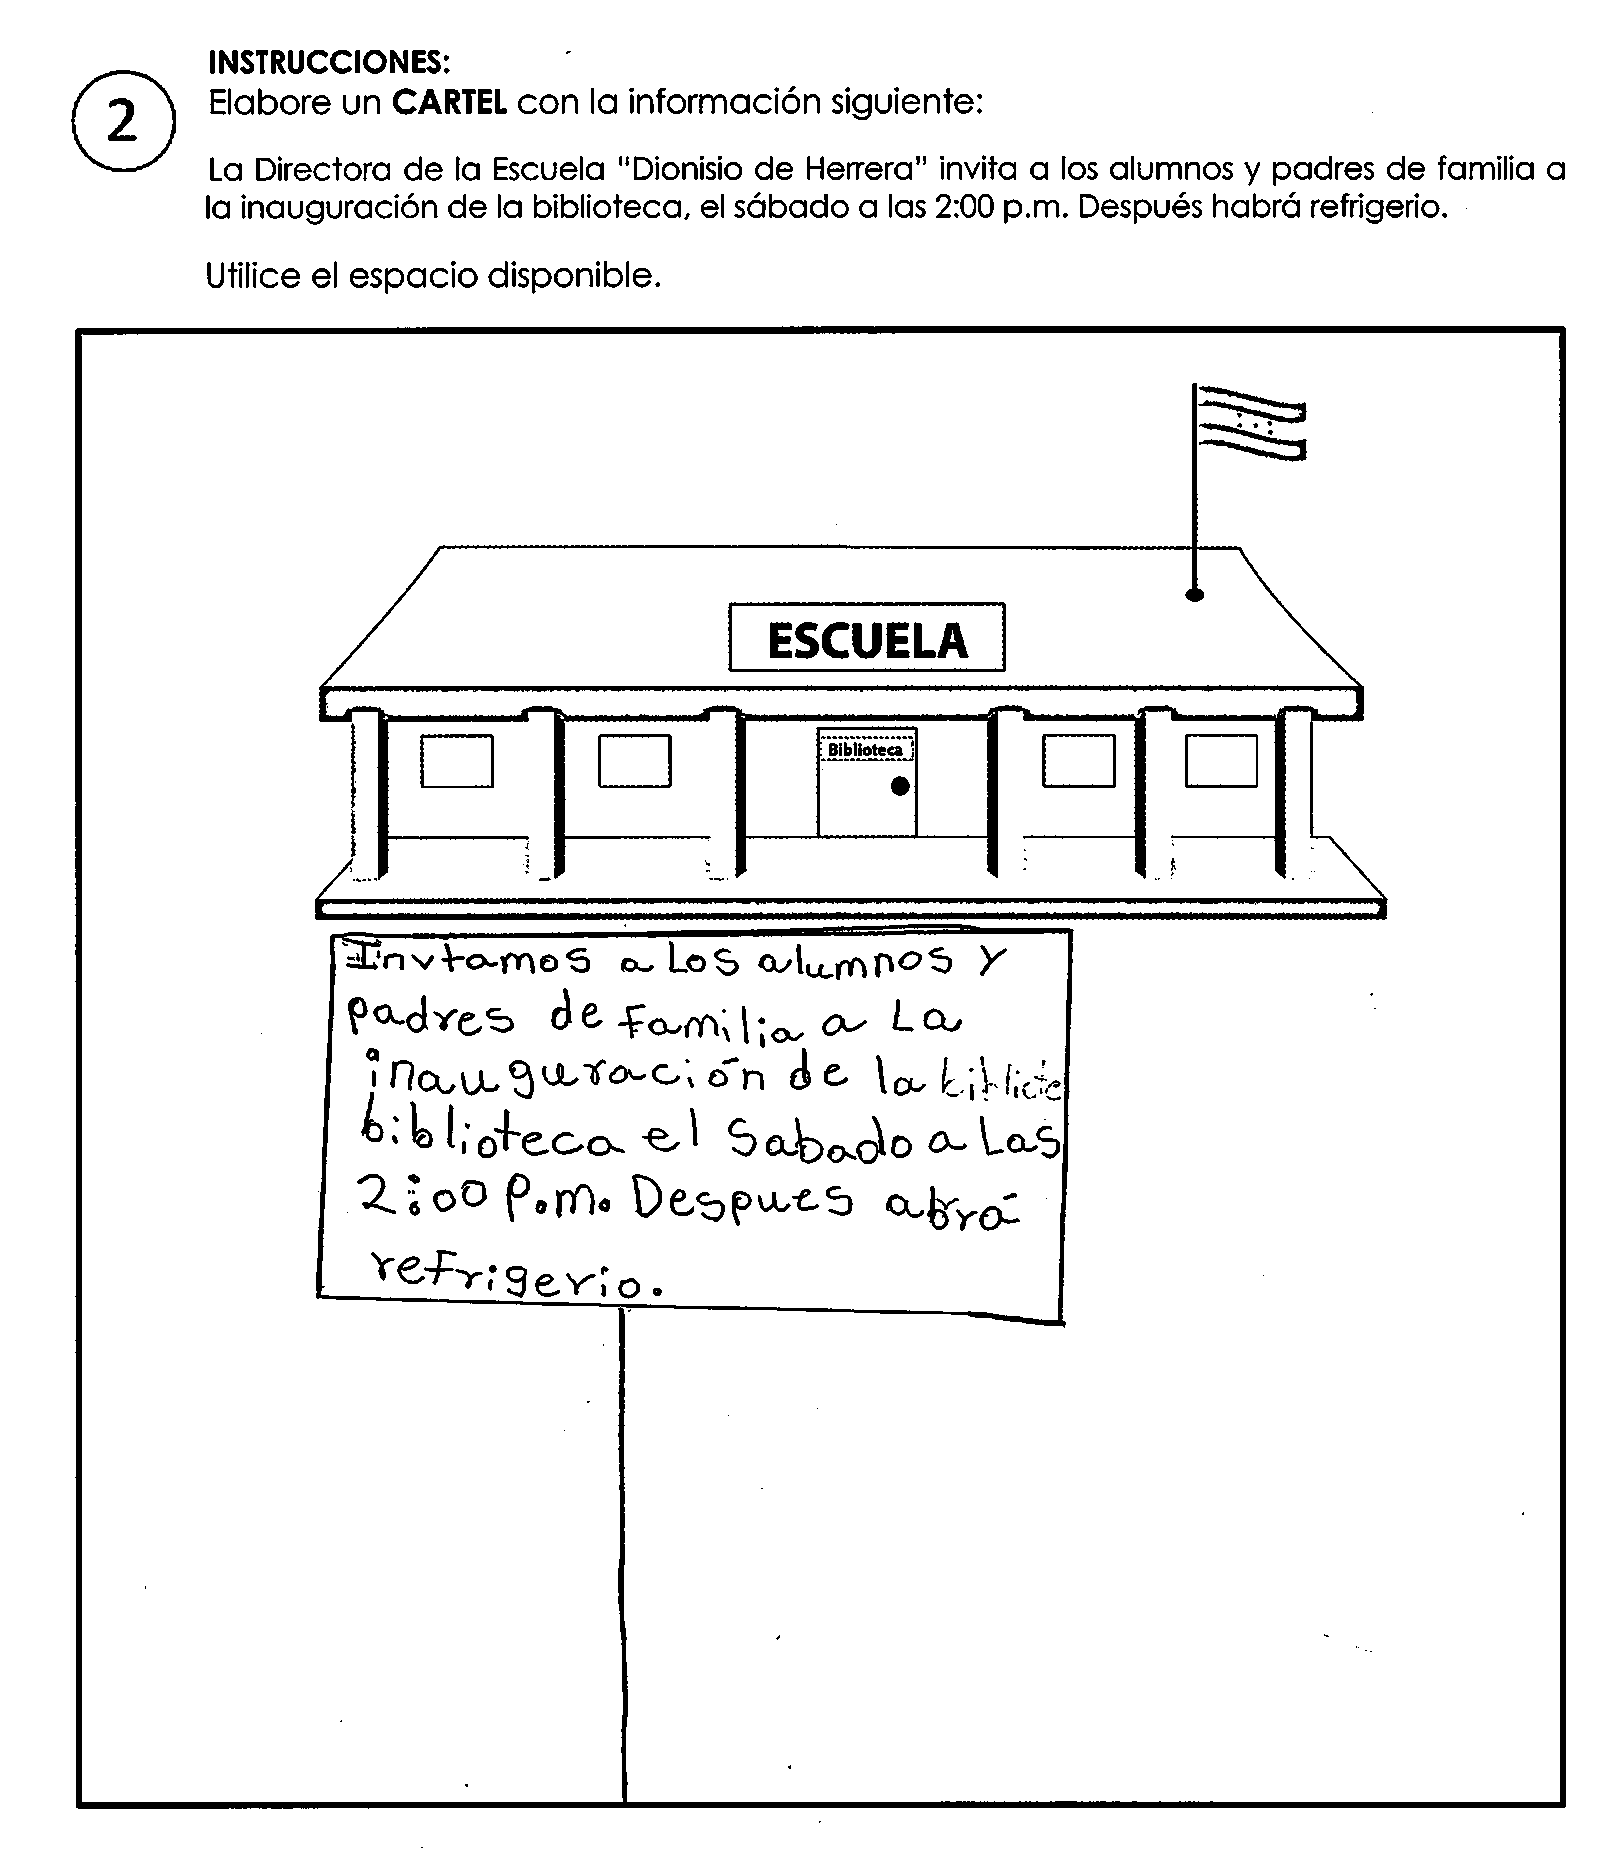 INSTRUCCIONES:
2
Elabore un CARTEL con la información siguiente:
La Directora de la Escuela "Dionisio de Herrera" invita a los alumnos y padres de familia a
la inauguración de la biblioteca, el sábado a las 2:00 p.m. Después habrá refrigerio.
Utilice el espacio disponible.
ESCUELA
Biblioteca
Invtamos a Los alumnos y
padres de familia a La
inauguración de la
biblioteca el Sabado a Las
2:00 P.m. Despues abrá
refrigerio.